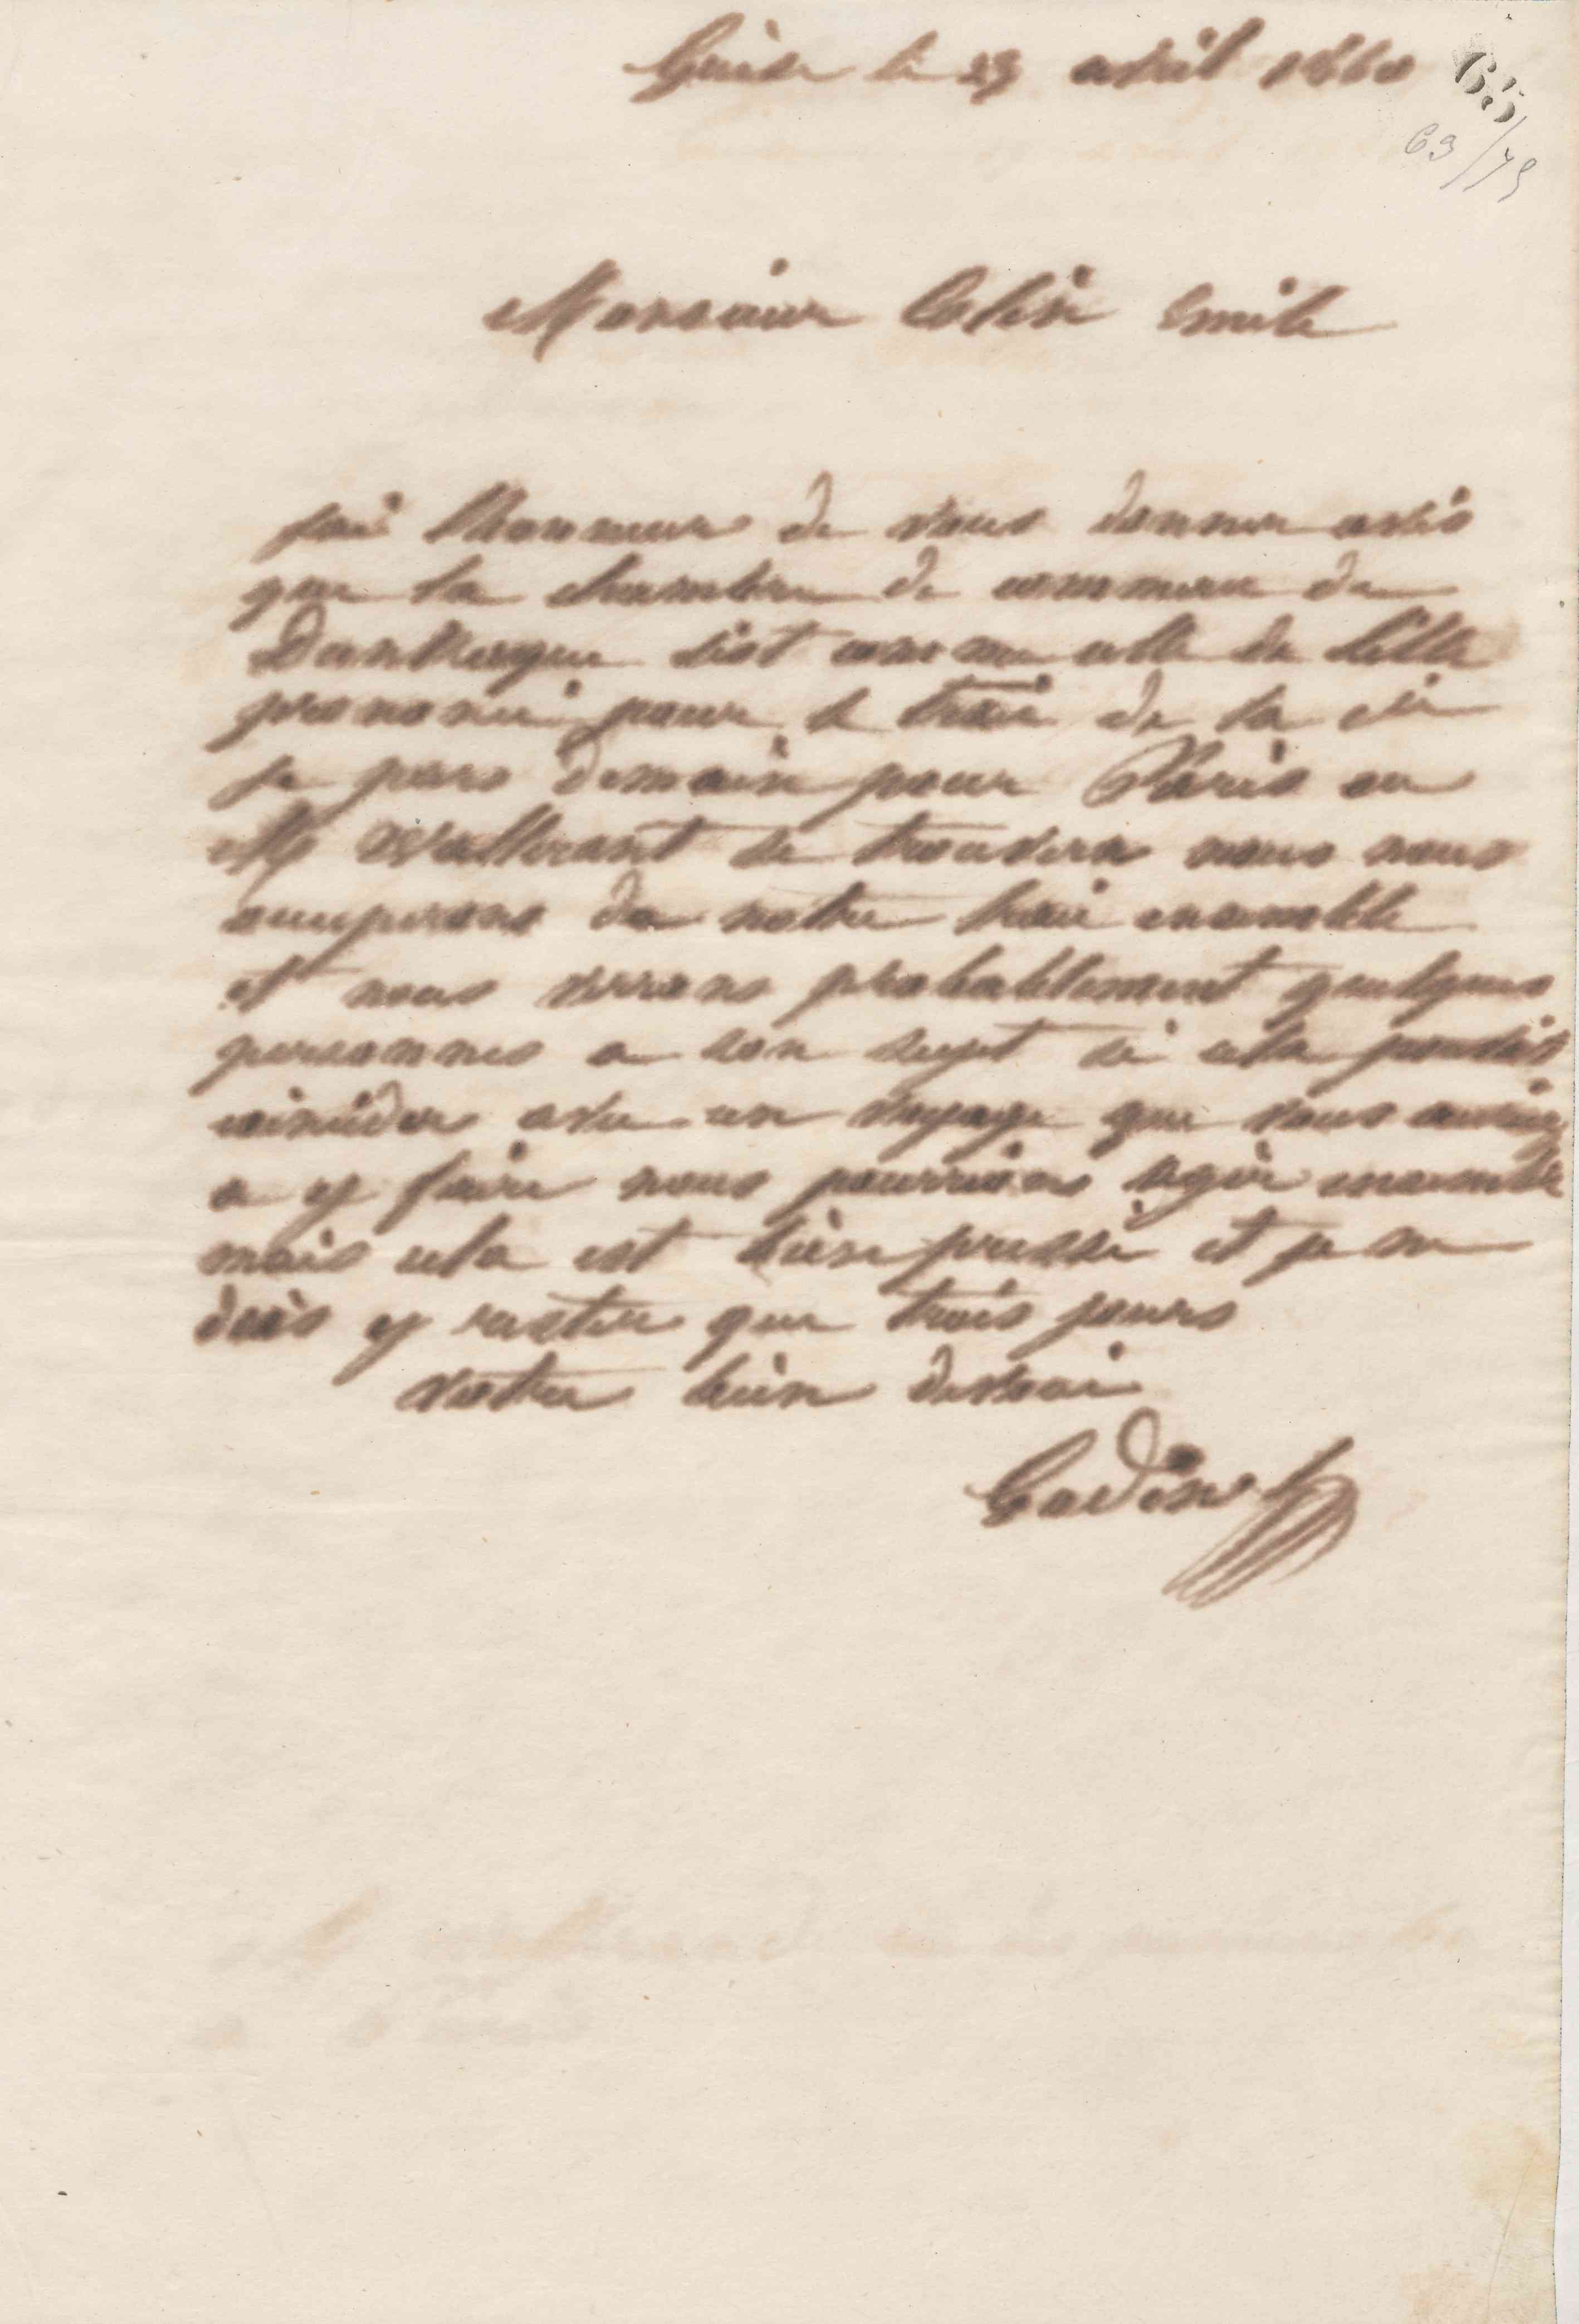 Guise le 29 avril 1860
65
69/79
Monsieur Colin Emile
j'ai l'honneur de vous donner avis
que la chambre de commerce de
Dunkerque s'est comme celle de Lille
prononcé pour le tracé de la
je pars demain pour Paris ou
Mr Wallerant se trouvera nous nous
occuperons de notre tracé ensemble
et nous verrons probablement quelques
personnes a son sujet si cela pouvait
coincider avec un voyage que vous auriez
a y faire nous pourrions agir ensemble
mais cela est bien pressé et je ne
dois y rester que trois jours
votre bien devoué
Godin